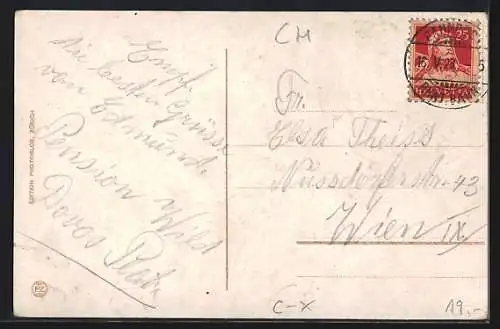 CM
Empf.
die besten Grüsse
von Edmund.
Pension Wild
Davos Platz
EDITION PHOTOGLOB, ZÜRICH
PZ
25
Fr.
Elsa Theiss
Nussdorferstr 43
Wien IX
C-X
19,-